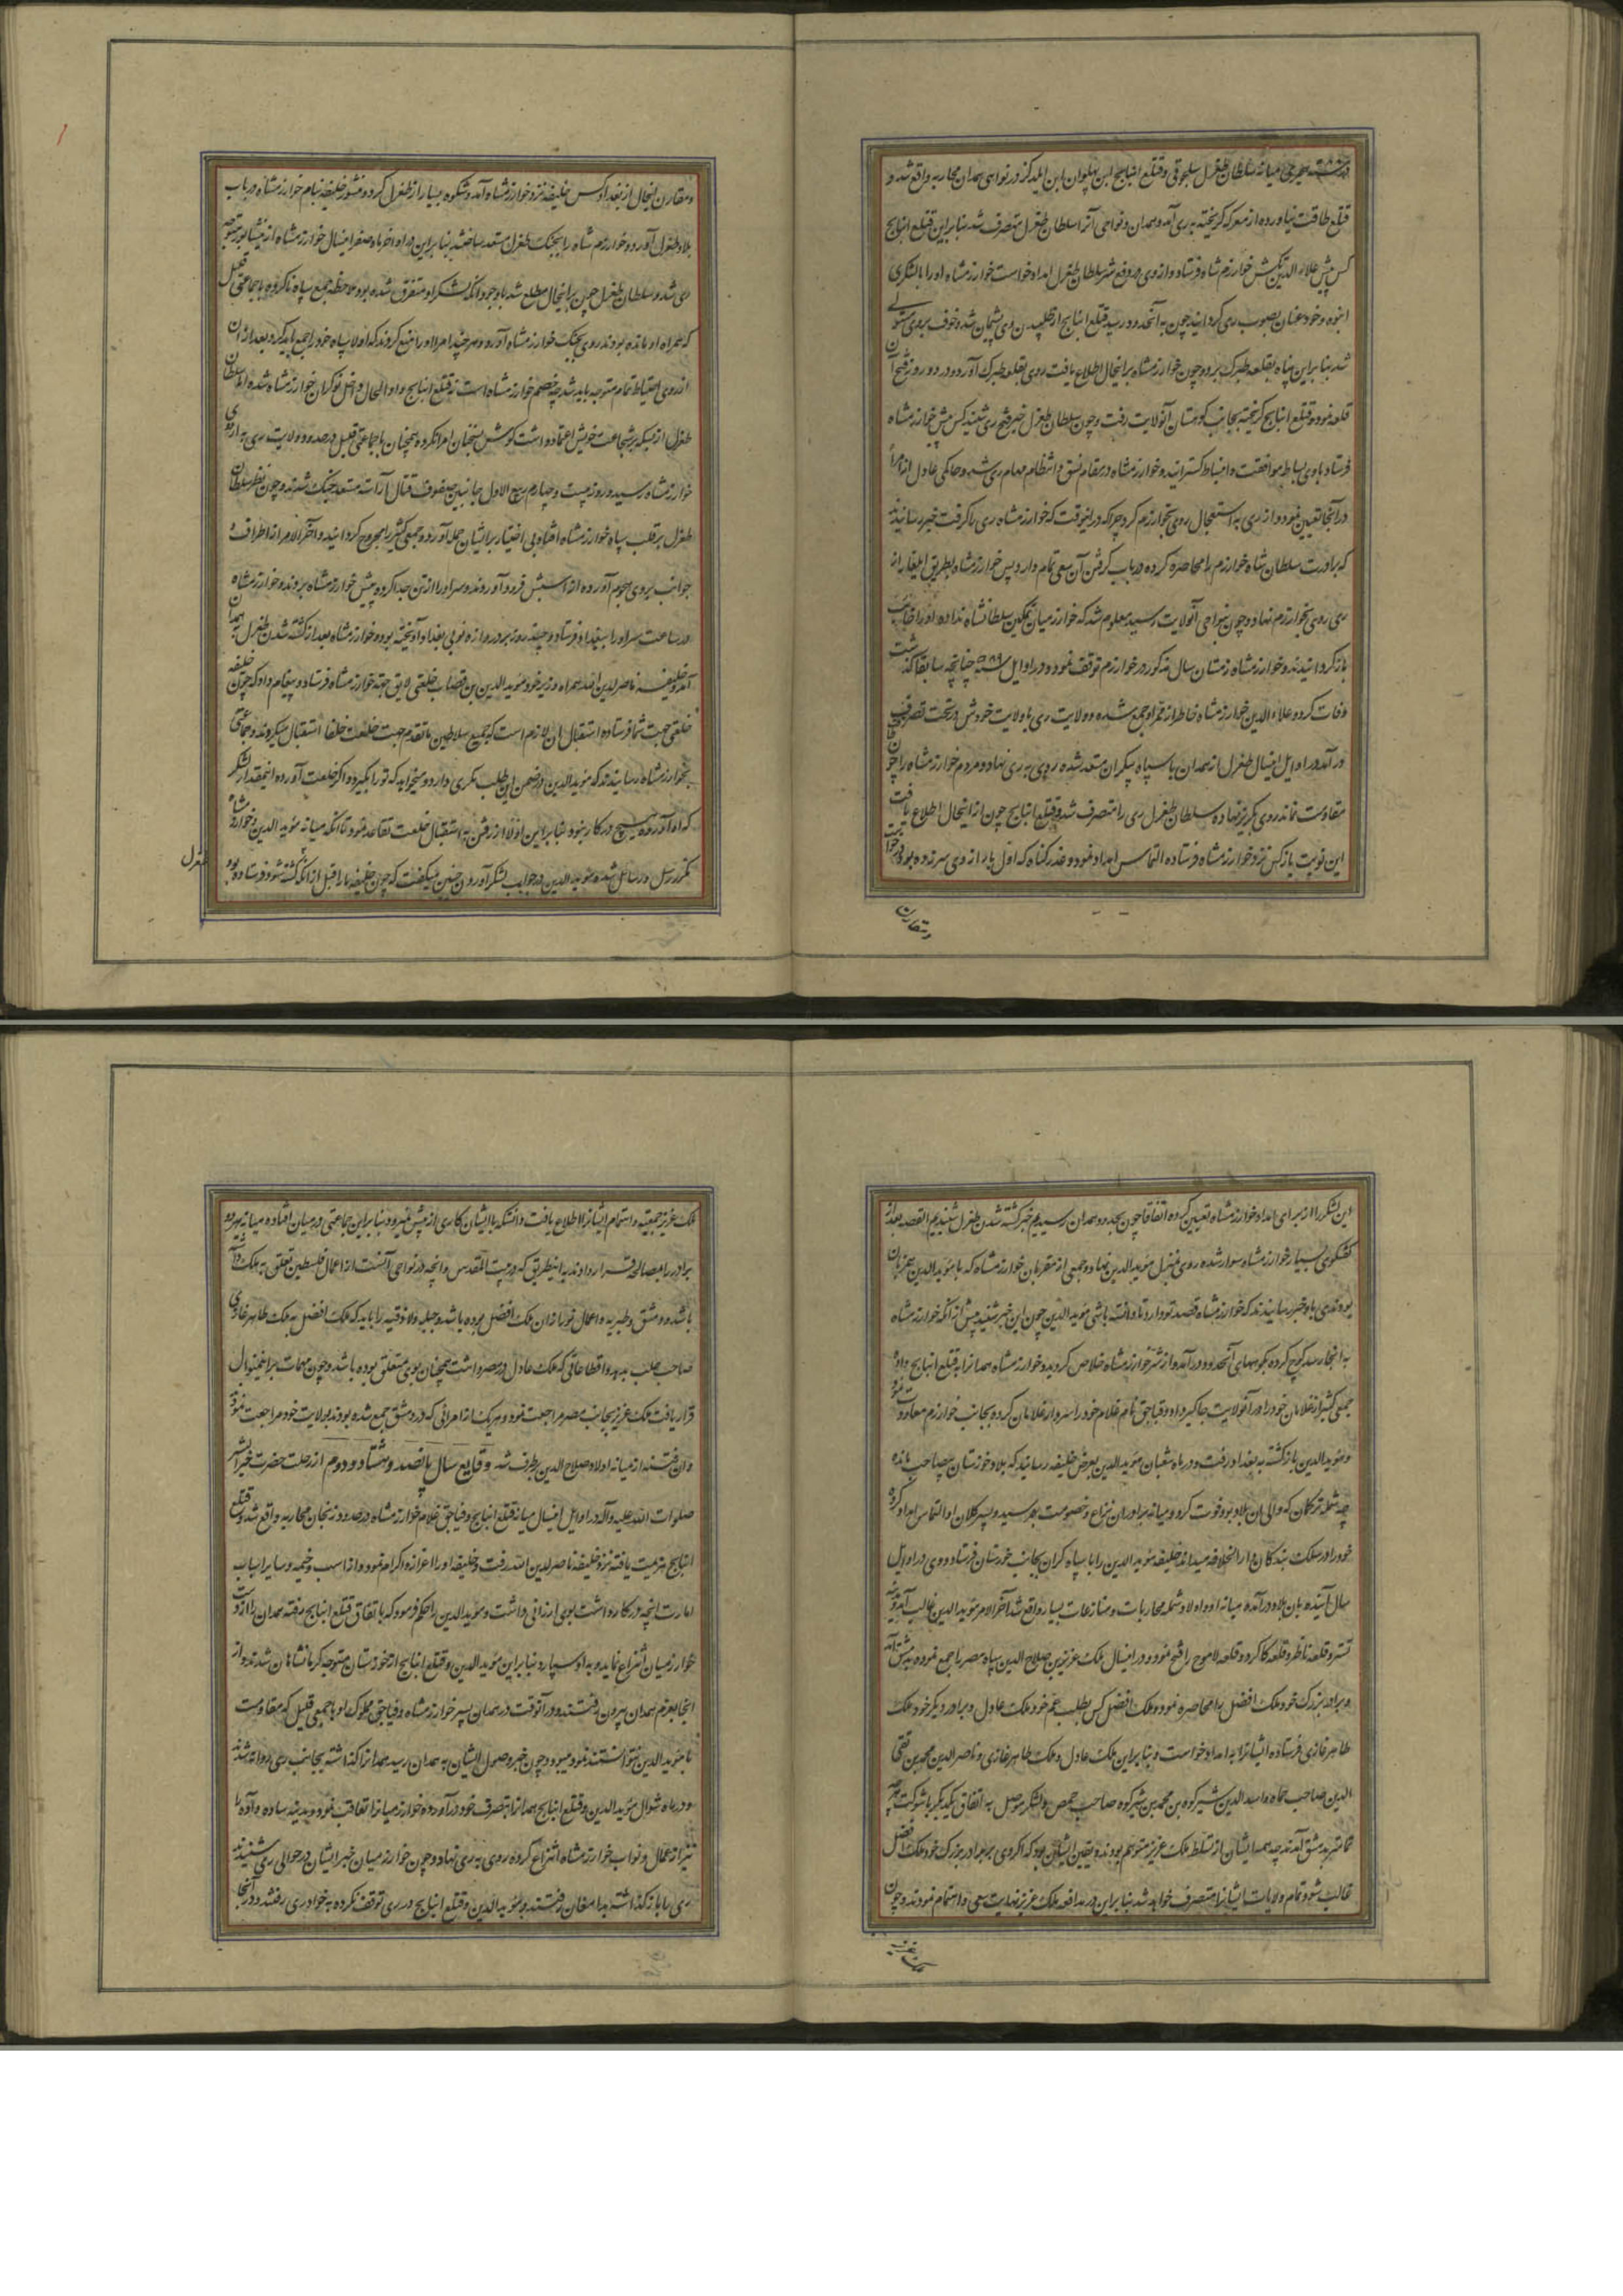 در سنه ۵۸۸ هجری میانه سلطان طغرل سلجوقی و قتلغ ابنانج ابن پهلوان ابن ایلدکز در نواحی همدان محاربه واقع شد و
قتلغ طاقت نیاورده از معرکه گریخته به ری آمد و همدان و نواحی آنرا سلطان طغرل متصرف شد بنابراین قتلغ ابنانج
کس پیش علاء الدین تکش خوارزم شاه فرستاد و از وی در دفع شر سلطان طغرل امداد خواست خوارزمشاه او را با لشکری
انبوه و خود عنان بصوب ری گردانید چون به آنحدود رسید قتلغ ابنانج از طلبیدن وی پشیمان شد و خوف بروی مستولی
شد بنابراین پناه بقلعه طبرک برد و چون خوارزمشاه برانحال اطلاع یافت روی بقلعه طبرک آورد و در دو روز فتح آن
قلعه نمود و قتلغ ابنانج گریخته بجانب کوهستان آنولایت رفت و چون سلطان طغرل خبر فتح ری شنید کس پیش خوارزمشاه
فرستاد با وی بساط موافقت و انبساط گسترانید و خوارزمشاه در مقام نسق و انتظام مهام ری شد و حاکمی عادل از امرا
در آنجا تعیین نمود و از ری به استعجال روی بخوارزم کرد چرا که در اینوقت که خوارزمشاه ری را گرفت خبر رسانیدند
که برادرت سلطان شاه خوارزم را محاصره کرده در باب گرفتن آن سعی تمام دارد پس خوارزمشاه بطریق ایلغار از
ری روی بخوارزم نهاد و چون بنواحی آنولایت رسید معلوم شد که خوارزمیان تمکین سلطانشاه نداده او را خایب
بازگردانیدند و خوارزمشاه زمستان سال مذکور در خوارزم توقف نمود و در اوایل سنه ۵۸۹ چنانچه سابقا گذشت
وفات کرد و علاء الدین خوارزمشاه خاطر از ممر او جمع شده و ولایت ری با ولایت خودش در تحت تصرف
در آمد در اوایل امسال طغرل از همدان با سپاه بیکران مستعد شده روی به ری نهاد و مردم خوارزمشاه را چون
مقاومت نماند روی بگریز نهاده سلطان طغرل ری را متصرف شد و قتلغ ابنانج چون از اینحال اطلاع یافت
این نوبت باز کس نزد خوارزمشاه فرستاده التماس امداد نمود و عذر گناه که اول بار از وی سر زده بود درخواست
و مقارن
و مقارن اینحال از بغداد کس خلیفه نزد خوارزمشاه آمد و شکوه بسیار از طغرل کرد و منشور خلیفه بنام خوارزمشاه در باب
بلاد طغرل آورد و خوارزم شاه را بجنگ طغرل مستعد ساخته بنابراین در اواخر ماه صفر امسال خوارزمشاه از نیشابور متوجه
ری شد و سلطان طغرل چون برانحال مطلع شد با وجود آنکه لشکر او متفرق شده بود ملاحظه جمع سپاه ناکرده با جماعتی قلیل
که همراه او مانده بودند روی بجنگ خوارزمشاه آورد و هرچند امرا او را منع کردند که اولا سپاه خود را جمع باید کرد و بعد از ان
از روی احتیاط تمام متوجه باید شد چه خصم خوارزمشاه است نه قتلغ ابنانج و او الحال داخل نوکران خوارزمشاه شده اما سلطان
طغرل از بسکه بر شجاعت خویش اعتماد داشت گوش بسخنان امرا نکرده همچنان با جماعتی قلیل در حدود ولایت ری به اردوی
خوارزمشاه رسید و روز بیست و چهارم ربیع الاول جانبین صفوف قتال آراسته مستعد جنگ شدند و چون نظر سلطان
طغرل بر قلب سپاه خوارزمشاه افتاد بی اختیار برایشان حمله آورد و جمعی کثیر را مجروح گردانید و آخر الامر از اطراف و
جوانب بروی هجوم آورده از اسبش فرود آوردند و سر او را از تن جدا کرده پیش خوارزمشاه بردند و خوارزمشاه
در ساعت سر او را ببغداد فرستاد و چند روز بر دروازه نوبی بغداد آویخته بود و خوارزمشاه بعد از کشته شدن طغرل بهمدان
آمد و خلیفه ناصر لدین الله همراه وزیر خود مؤید الدین بن قصاب خلعتی لایق جهة خوارزمشاه فرستاد و پیغام داد که چون خلیفه
خلعتی جهت شما فرستاده استقبال ان لازم است که جمیع سلاطین ما تقدم جهت خلعت خلفا استقبال میکردند و جماعتی
بخوارزمشاه رسانیدند که مؤید الدین در ضمن این طلب مکری دارد و میخواهد که تو را بگیرد و اگر خلعت آورده اینمقدار لشکر
که او آورده هیچ در کار نبود بنابراین اولا از رفتن به استقبال خلعت تقاعد نمود تا آنکه میانه مؤید الدین و خوارزمشاه
مکرر رسل و رسائل شده مؤید الدین در جواب لشکر آوردن چنین میگفت که چون خلیفه ما را قبل از آنکه کشته شود فرستاده بود
طغرل
این لشکر را از برای امداد خوارزمشاه تعیین کرده اتفاقا چون بحدود همدان رسیدیم خبر کشته شدن طغرل شنیدیم القصه بعد از
گفتگوی بسیار خوارزمشاه سوار شده روی بمنزل مؤید الدین نهاد و جمعی از مقربان خوارزمشاه که با مؤید الدین همزبان
بودند وی را خبر رسانیدند که خوارزمشاه قصد تو دارد تا دانسته باشی مؤید الدین چون این خبر شنید پیش از آنکه خوارزمشاه
به انجا رسد کوچ کرده بکوههای آنحدود در آمد و از شر خوارزمشاه خلاص گردید و خوارزمشاه همدانرا به قتلغ ابنانج داده
جمعی کثیر از غلامان خود را در آنولایت جاگیر داد و قیاجق نام غلام خود را سردار غلامان کرده بجانب خوارزم معاودت نمود
و مؤید الدین بازگشته به بغداد رفت و در ماه شعبان مؤید الدین بعرض خلیفه رسانید که بلاد خوزستان بی صاحب مانده
چه شمله ترکمان که والی ان بلاد بود فوت کرد و میانه برادران نزاع و خصومت بهم رسید و پسر کلان او التماس امداد کرده
خود را در سلک بندگان دار الخلافه میداند خلیفه مؤید الدین را با سپاه گران بجانب خوزستان فرستاد و وی در اوایل
سال آینده بان بلاد در آمده میانه او و اولاد شمله محاربات و منازعات بسیار واقع شد آخر الامر مؤید الدین غالب آمد و مدینه
تستر و قلعه ناظر و قلعه کاکرد و قلعه لاموج را فتح نمود و در امسال ملک عزیز بن صلاح الدین سپاه مصر را جمع نموده بدمشق آمد
و برادر بزرگ خود ملک افضل را محاصره نمود و ملک افضل کس بطلب عم خود ملک عادل و برادر دیگر خود ملک
ظاهر غازی فرستاده ایشانرا به امداد خواست و بنابراین ملک عادل و ملک ظاهر غازی و ناصر الدین محمد بن تقی
الدین صاحب حماه و اسد الدین شیرکوه بن محمد بن شیرکوه صاحب حمص و لشکر موصل به اتفاق یکدیگر با شوکت هرچه
تمامتر بدمشق آمدند چه همه ایشان از تسلط ملک عزیز متوهم بودند و یقین ایشان بود که اگر وی بر برادر بزرگ خود ملک افضل
غالب شود تمام ولایات ایشانرا متصرف خواهد شد بنابراین در مدافعه ملک عزیز نهایت سعی و اهتمام نمودند و چون
ملک عزیز
ملک عزیز جمعیت و اهتمام ایشانرا اطلاع یافت دانست که با ایشان کاری از پیش نمیرود بنابراین جماعتی در میان افتاده میانه هر دو
برادر را بمصالحه قرار دادند به اینطریق که بیت المقدس و انچه در نواحی آنست از اعمال فلسطین تعلق به ملک عزیز داشته
باشد و دمشق و طبریه و اعمال غور از ان ملک افضل بوده باشد و جبله و لاذقیه را باید که ملک افضل به ملک ظاهر غازی
صاحب حلب بدهد و اقطاعاتی که ملک عادل در مصر داشت همچنان بوی متعلق بوده باشد و چون مهمات براینمنوال
قرار یافت ملک عزیز بجانب مصر مراجعت نمود و هر یک از امرائی که در دمشق جمع شده بودند بولایت خود مراجعت نمودند
و ان فتنه از میانه اولاد صلاح الدین برطرف شد وقایع سال پانصد و هشتاد و دوم از رحلت حضرت خیر البشر
صلوات الله علیه و آله در اوایل امسال میانه قتلغ ابنانج و قیاجق غلام خوارزمشاه در حدود زنجان محاربه واقع شد و قتلغ
ابنانج هزیمت یافته نزد خلیفه ناصر لدین الله رفت و خلیفه او را اعزاز و اکرام نمود و از اسب و خیمه و سایر اسباب
امارت انچه در کار داشت بوی ارزانی داشت و مؤید الدین را حکم فرمود که باتفاق قتلغ ابنانج رفته همدان را از دست
خوارزمیان انتزاع نماید و به او سپارد بنابراین مؤید الدین و قتلغ ابنانج از خوزستان متوجه کرمانشاهان شدند و از
انجا بعزم همدان بیرون رفتند و در آنوقت در همدان پسر خوارزمشاه و قیاجق مملوک او با جمعی قلیل که مقاومت
با مؤید الدین نتوانستند نمود میبود و چون خبر وصول ایشان به همدان رسید همدانرا گذاشته بجانب ری روانه شدند
و در ماه شوال مؤید الدین و قتلغ ابنانج همدانرا بتصرف خود در آورده خوارزمیانرا تعاقب نمود و بمدینه ساوه و آوه را
نیز از عمال و نواب خوارزمشاه انتزاع کرده روی به ری نهاد و چون خوارزمیان خبر ایشان در حوالی ری شنیدند
ری را باز گذاشته بدامغان رفتند و مؤید الدین و قتلغ ابنانج در ری توقف نکرده به خوار ری رفتند و در آنجا